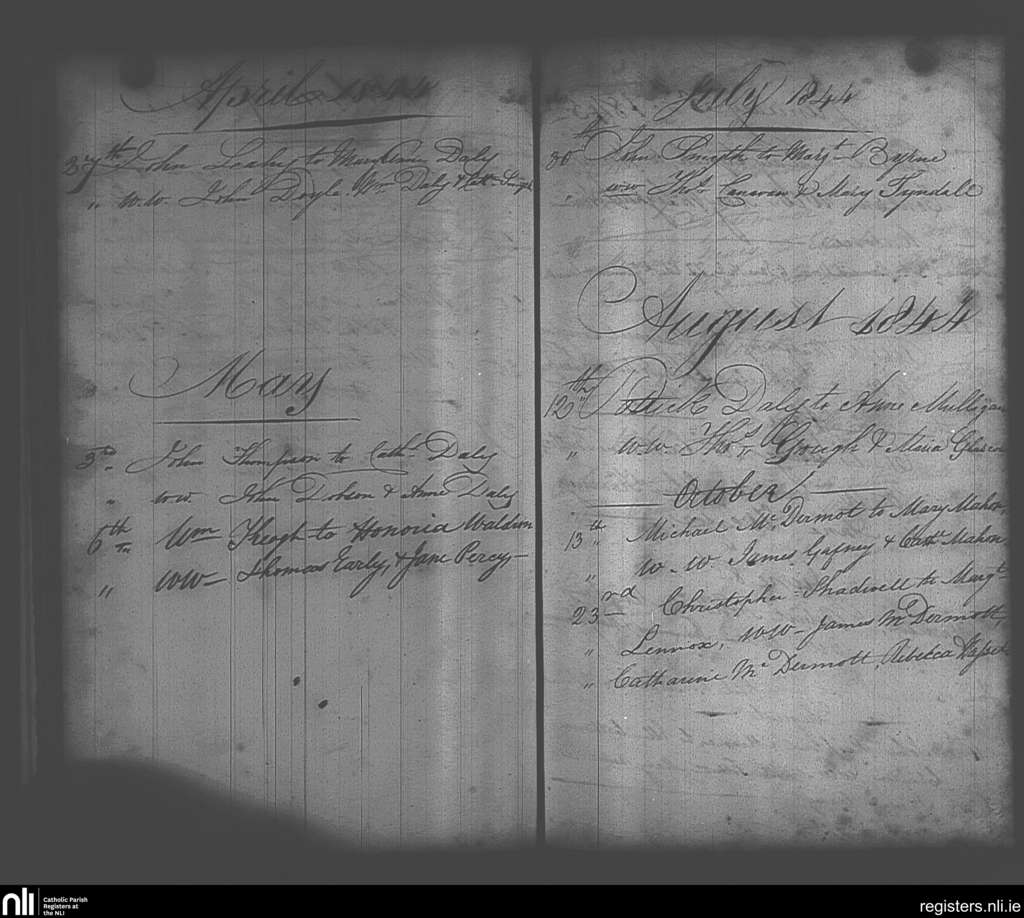 April 1844
27th John Leahy to MaryAnne Daly
" W.W. John Doyle Wm Daly & Cath
May
3d " John Thompson to Cath. Daly
" W.W. John Dobson & Anne Daly
6th Wm Keogh to Honoria Waldron
" WW- Thomas Early, & Jane Percy-
July 1844
30th John Smyth to Margt Byrne
" W.W Thos Canavan & Mary Tyndale
August 1844
12th Patrick Daly to Anne Mulligan
" W.W. Thos Gough & Maria
October
13th Michael McDermot to Mary Mahon
" W.W. James Gafney & Cath Mahon
23rd Christopher Shadwell to Margt
" Lennox, WW- James McDermott
" Catharine McDermott, Rebecca
nli
Catholic Parish
Registers at
the NLI
registers.nli.ie